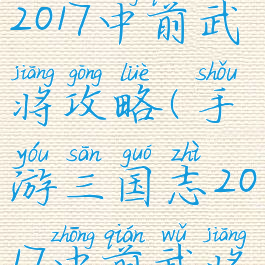 2017中前武
jiāng gōng lüè shǒu
将攻略(手
yóu sān guó zhì
游三国志20
zhōng qián wǔ jiāng
17中前武将